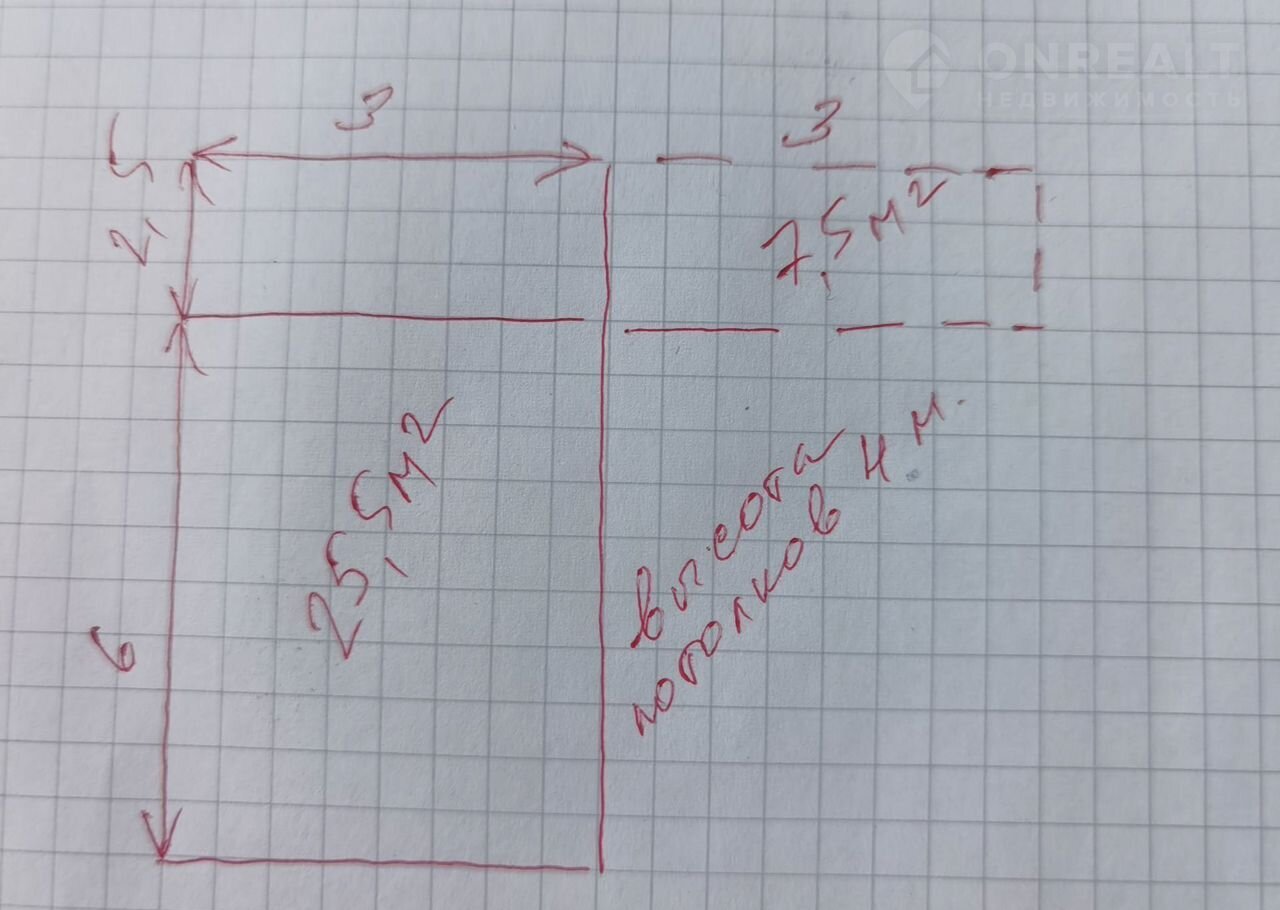 ONREALT
НЕДВИЖИМОСТЬ
3
3
2,5
7,5 м2
25,5 м2
6
высота
потолков 4 м.